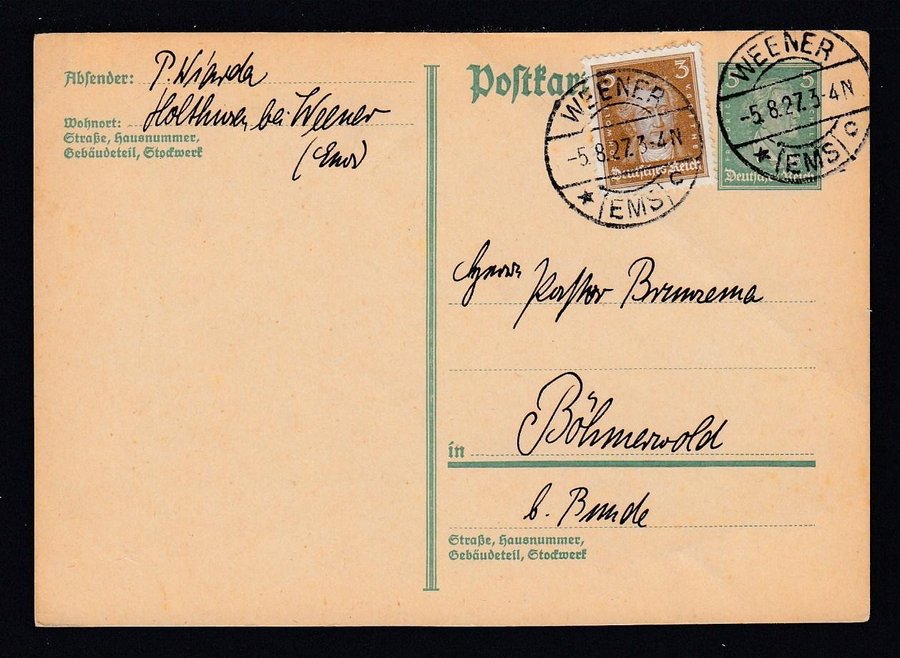 Absender: P. Wiarda
Wohnort: Holthusen bei Weener
Straße, Hausnummer,
Gebäudeteil, Stockwerk
(Ems)
Postkar
3
Deutsches Reich
5 5
Deutsches Reich
WEENER
-5.8.27.3-4N
★ (EMS) c
WEENER
-5.8.27.3-4N
★ (EMS) c
Herrn Pastor
in Böhmerwold
b. Bunde
Straße, Hausnummer,
Gebäudeteil, Stockwerk